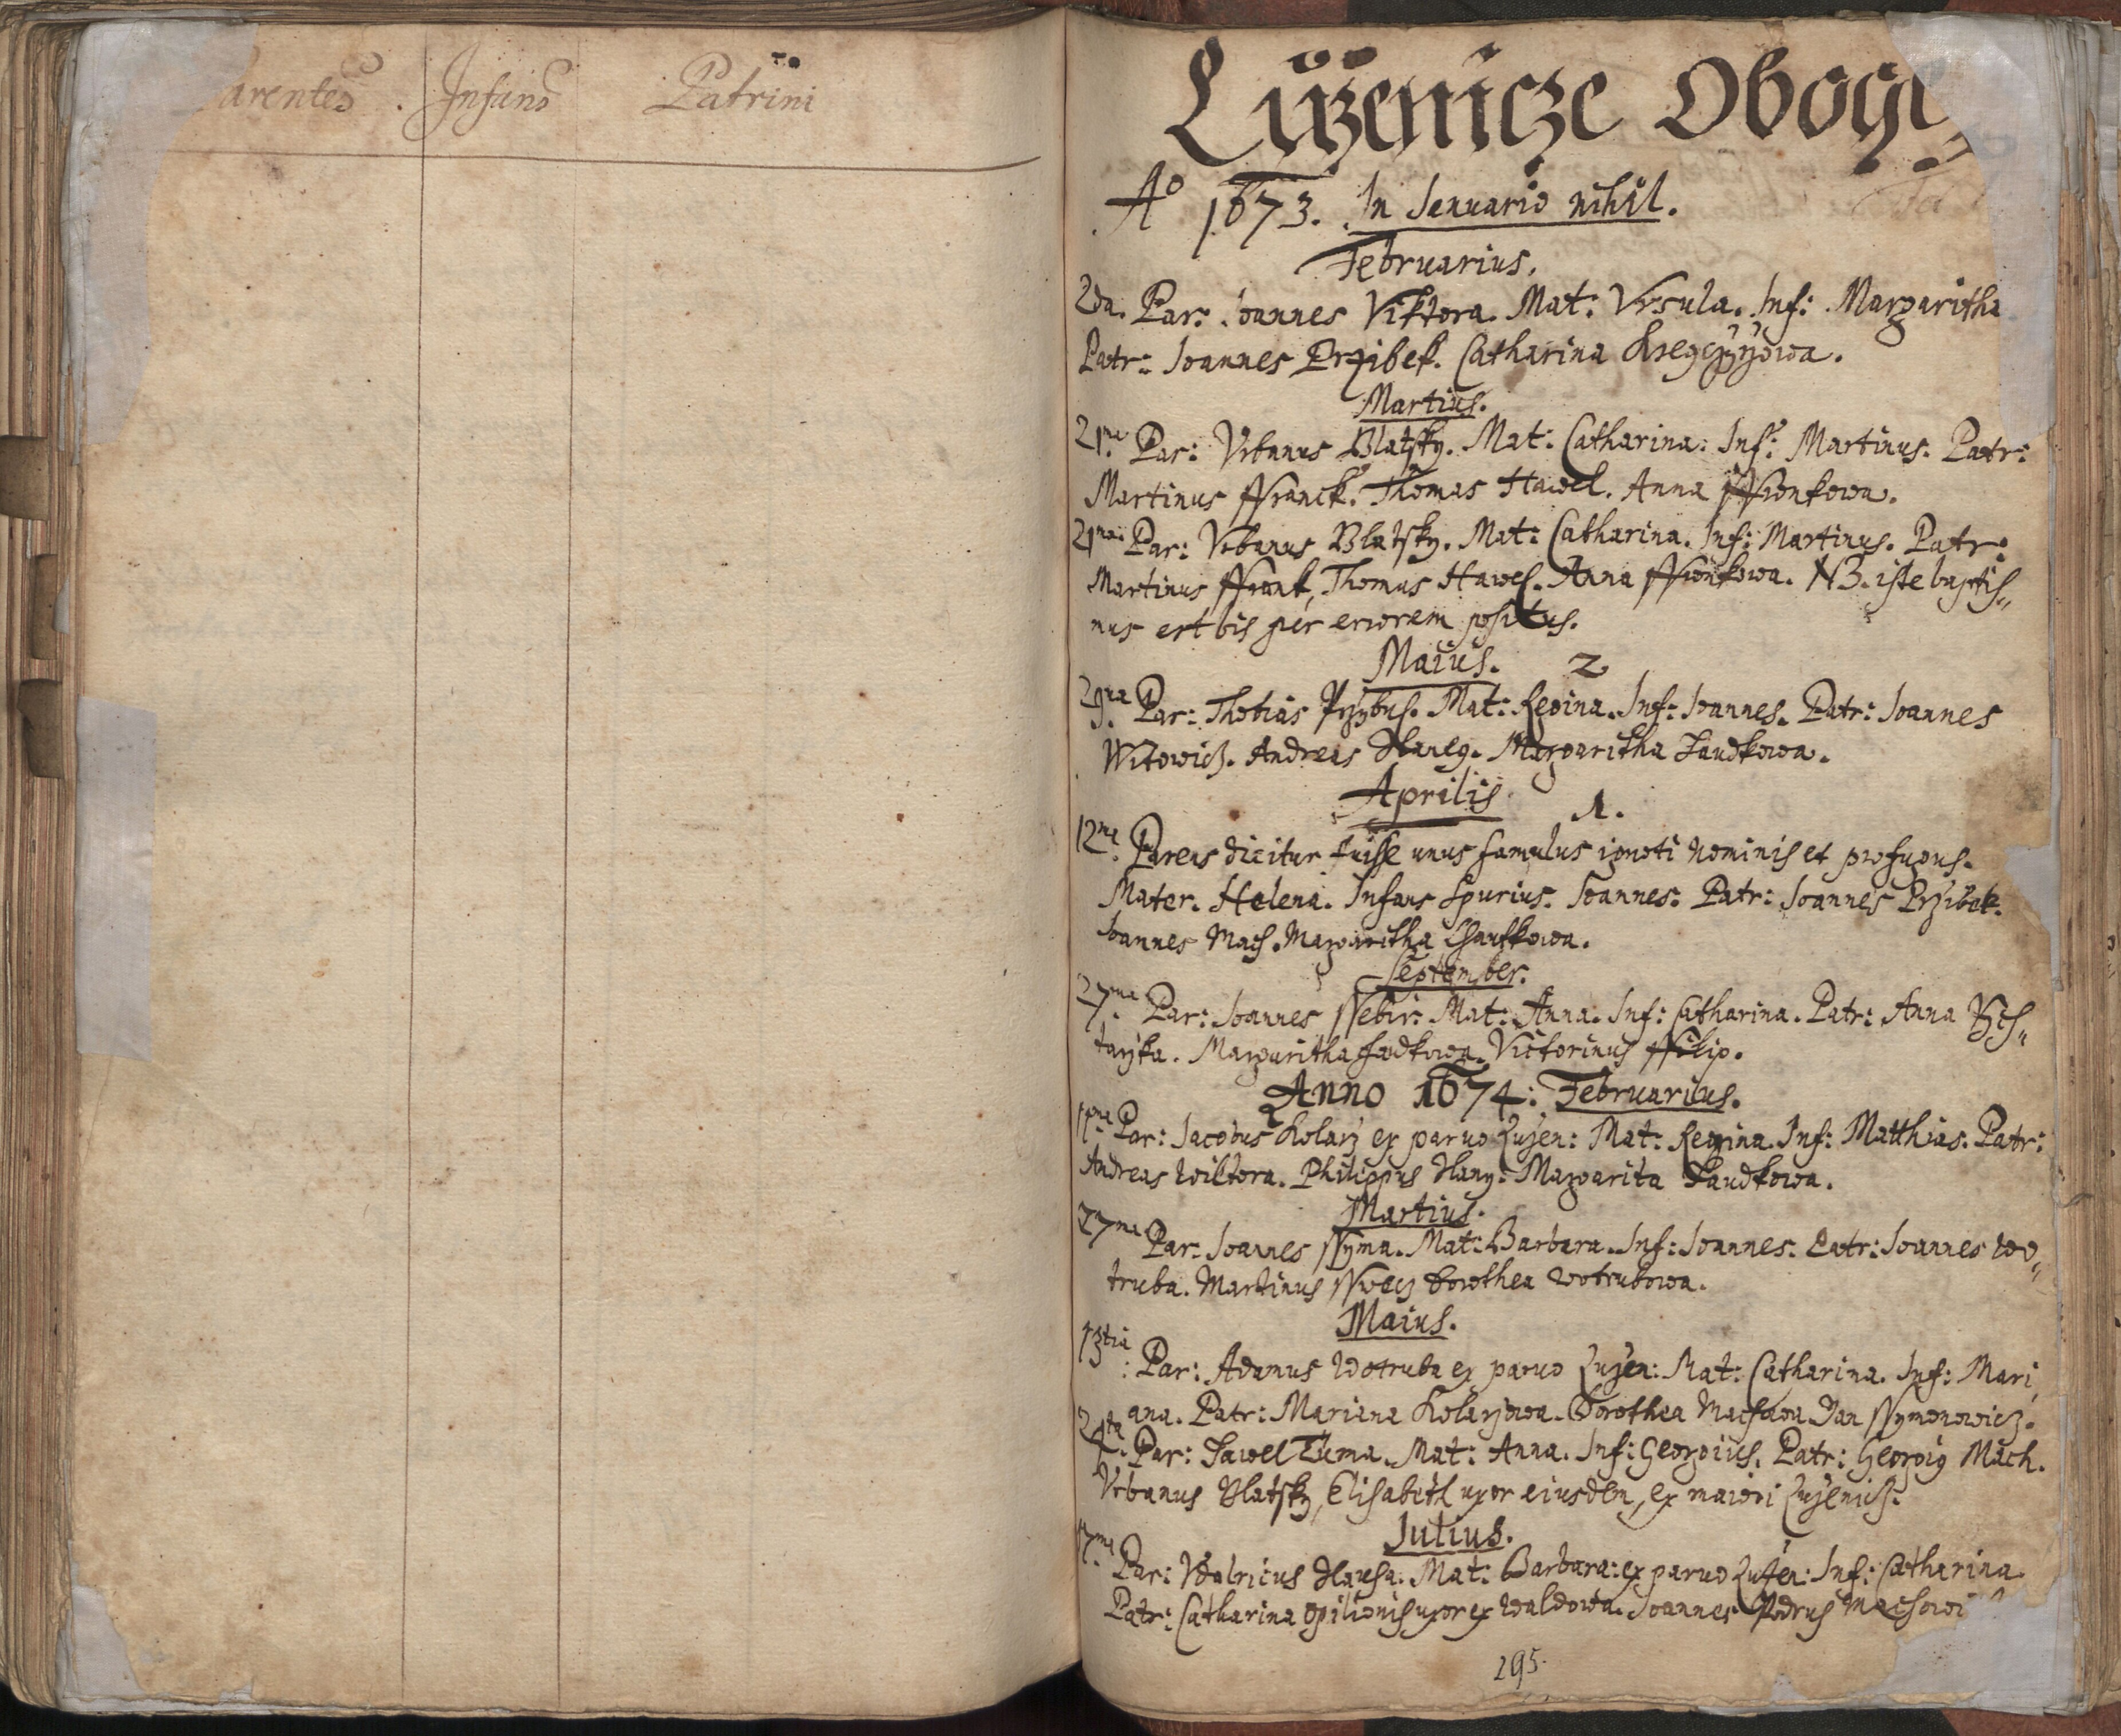 arentes. Infans Patrini
Lüzenicze Obogi
Aº 1673. In Ienuario nihil.
Februarius.
2da. Par: Ioannes Viktora. Mat: Vrsula. Inf: Margaritha
Patr: Ioannes Przibek. Catharina
Martius.
21ma Par: Vrbanus Blatsky. Mat: Catharina: Inf: Martinus. Patr:
Martinus Ffranck. Thomas Hawel. Anna
21ma Par: Vrbanus Blatsky. Mat: Catharina. Inf: Martinus. Patr:
Martinus Ffrank, Thomas Hawel. Anna NB. iste baptis„
mus est bis per errorem positus.
Maius. 2
29na Par: Thobias Mat: Regina. Inf: Ioannes. Patr: Ioannes
Witowicz. Andreas Margaritha Laudkowa.
Aprilis 1.
12ma. Parens dicitur fuisse unus famulus ignoti nominis et profugus.
Mater. Helena. Infans Spurius. Ioannes. Patr: Ioannes Przibek.
Ioannes Mach. Margaritha
September.
27ma Par: Ioannes Mat: Anna. Inf: Catharina. Patr: Anna
Margaritha Victorinus Ffilip.
Anno 1674: Februarius.
Par: Iacobus Kolarz ex paruo Luzen: Mat: Regina. Inf: Matthias. Patr:
Andreas Wiktora. Philippus Hany. Margarita Laudkowa.
Martius.
27ma Par. Ioannes Mat: Barbara. Inf: Ioannes. Patr: Ioannes Wo„
truba. Martinus Sswecz Dorothea Wotrubowa.
Maius.
13tia: Par: Adamus Wotruba ex paruo Luzen: Mat: Catharina. Inf: Mari„
ana. Patr: Mariana Kolarzowa. Dorothea Machowa Jan Ssymonowicz.
24ta. Par: Pawel Tuma. Mat: Anna. Inf: Georgius. Patr: Georgius Mach.
Vrbanus Blatsky, Elisabeth uxor eiusdem, ex maiori Luzenicz.
Iulius.
17ma Par: Vdalricus Hausa. Mat: Barbara: ex paruo Luzen: Inf: Catharina.
Patr: Catharina opilionis uxor ex Waldowa. Ioannes
295.